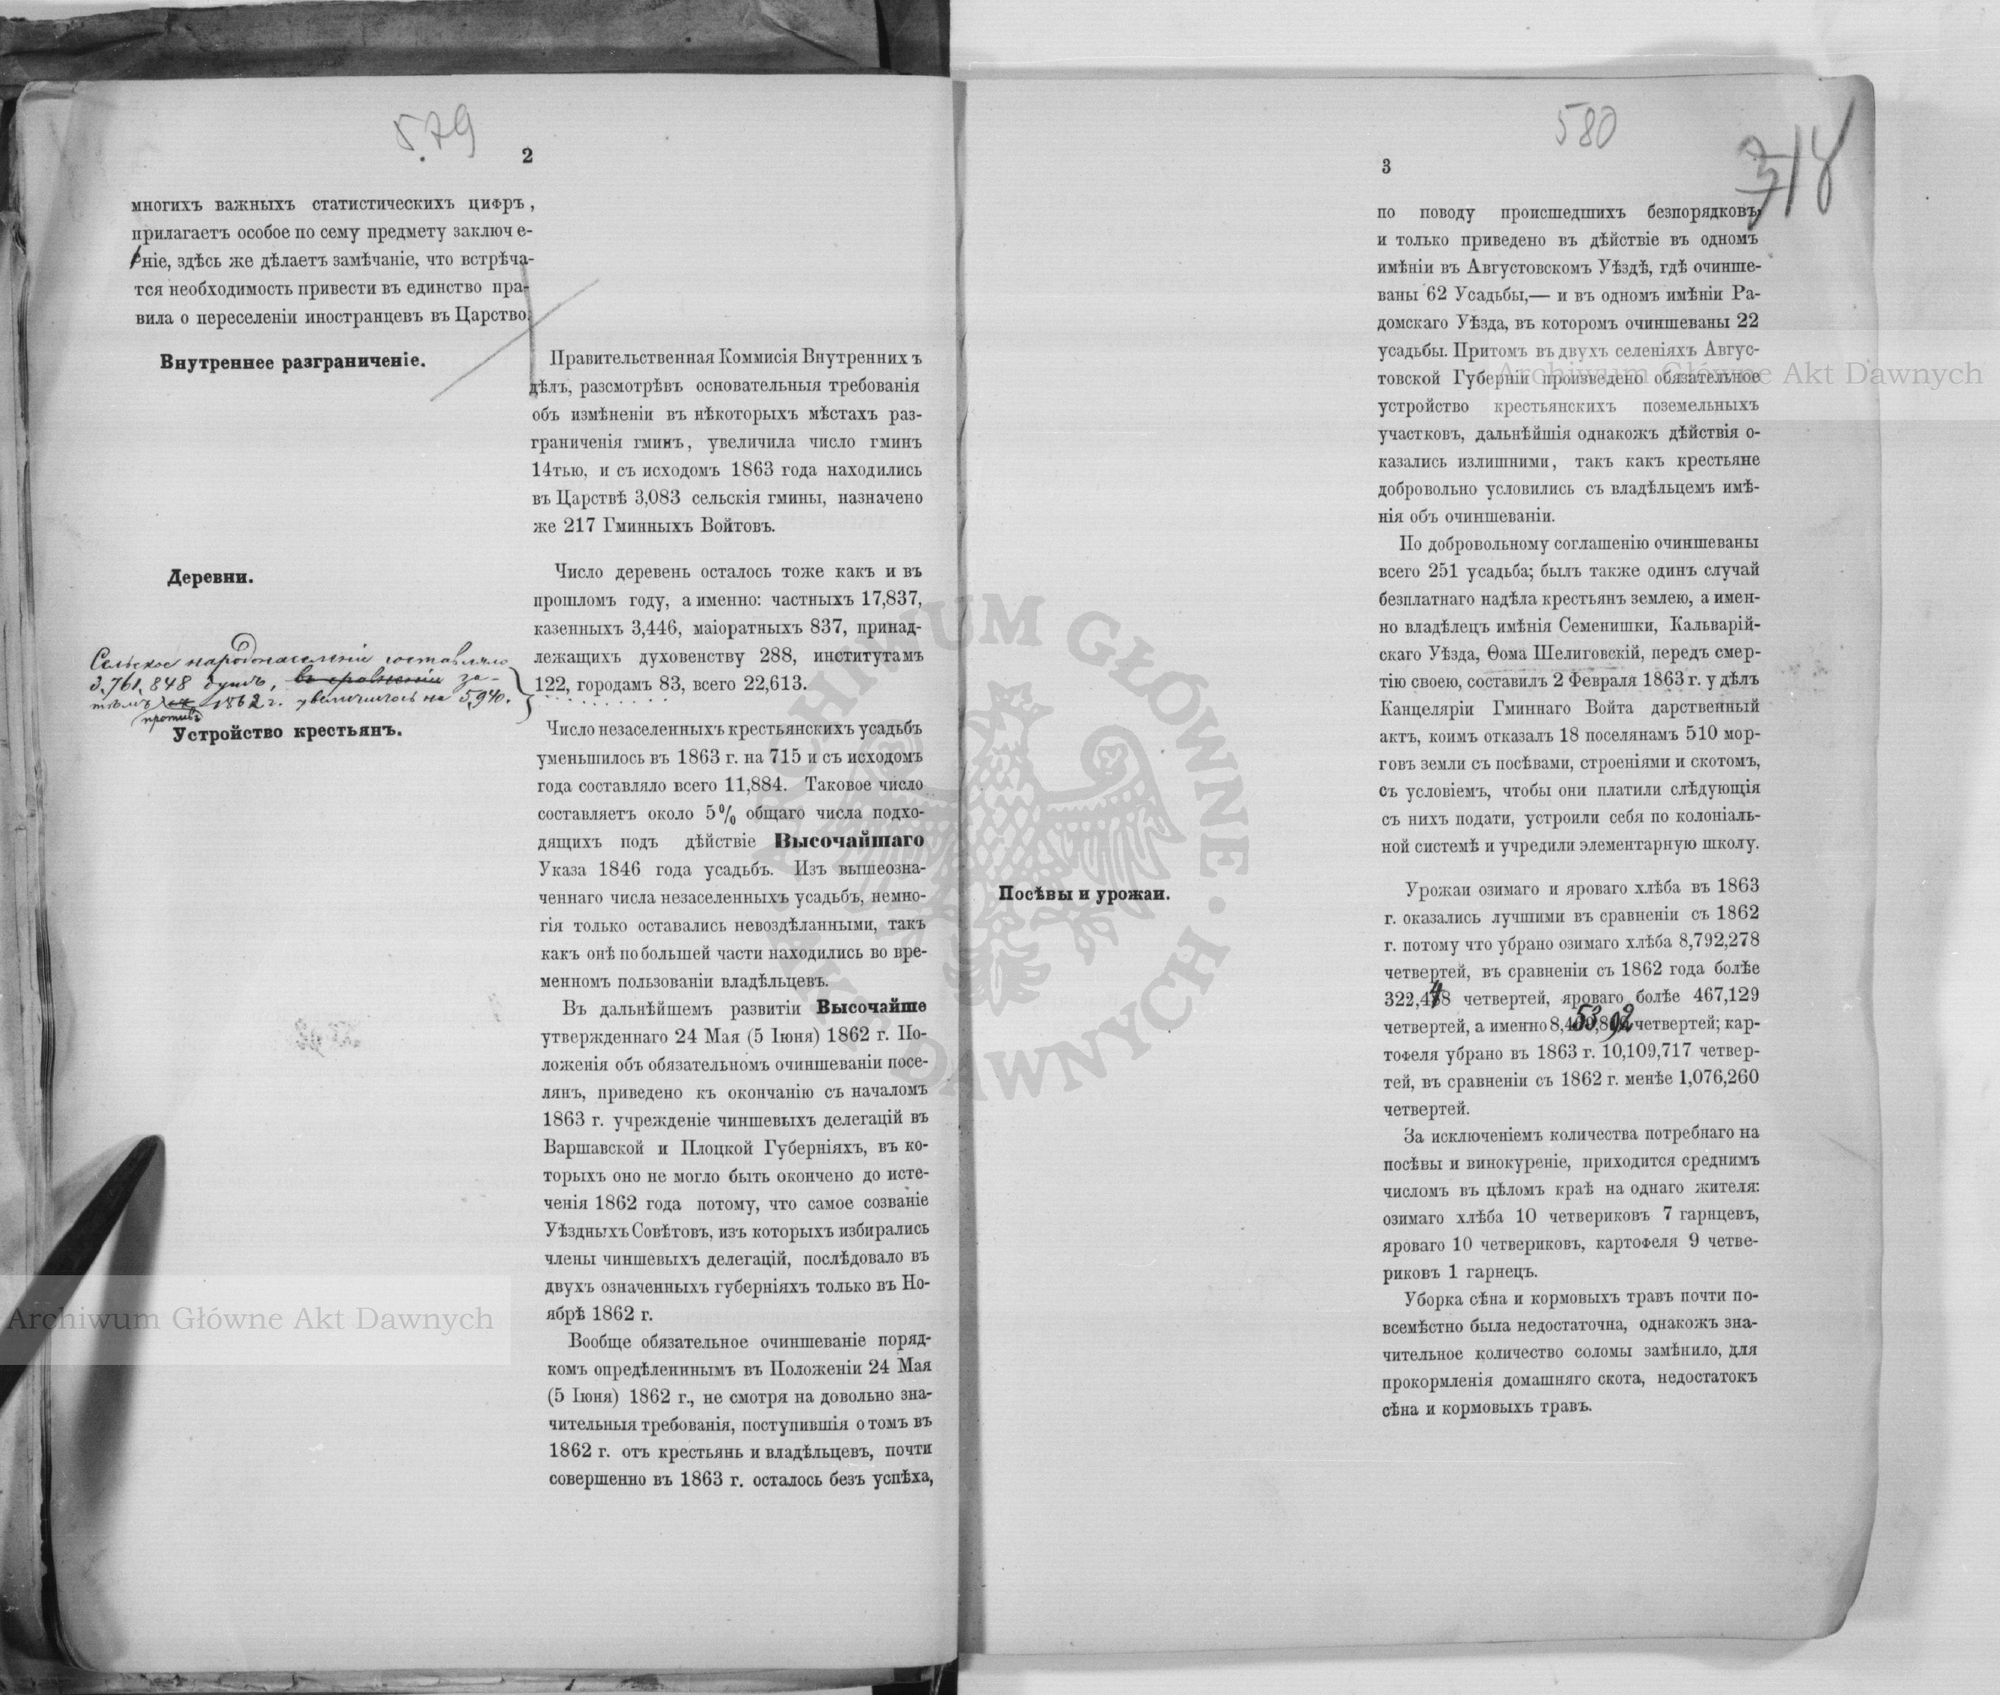 579
2
многихъ важныхъ статистическихъ цифръ,
прилагаетъ особое по сему предмету заключе-
ніе, здѣсь же дѣлаетъ замѣчаніе, что встрѣча-
тся необходимость привести въ единство пра-
вила о переселеніи иностранцевъ въ Царство.
Внутреннее разграниченіе.
Правительственная Коммисія Внутреннихъ
дѣлъ, разсмотрѣвъ основательныя требованія
объ измѣненіи въ нѣкоторыхъ мѣстахъ раз-
граниченія гминъ, увеличила число гминъ
14тью, и съ исходомъ 1863 года находились
въ Царствѣ 3,083 сельскія гмины, назначено
же 217 Гминныхъ Войтовъ.
Деревни.
Число деревень осталось тоже какъ и въ
прошломъ году, а именно: частныхъ 17,837,
казенныхъ 3,446, маіоратныхъ 837, принад-
лежащихъ духовенству 288, институтамъ
122, городамъ 83, всего 22,613.
Сельское народонаселеніе составляло
3,761,848 душъ, въ сравненіи за-
тѣмъ 1862 г. увеличилось на 5,940.
противъ
Устройство крестьянъ.
Число незаселенныхъ крестьянскихъ усадьбъ
уменьшилось въ 1863 г. на 715 и съ исходомъ
года составляло всего 11,884. Таковое число
составляетъ около 5% общаго числа подхо-
дящихъ подъ дѣйствіе Высочайшаго
Указа 1846 года усадьбъ. Изъ вышеозна-
ченнаго числа незаселенныхъ усадьбъ, немно-
гія только оставались невоздѣланными, такъ
какъ онѣ по большей части находились во вре-
менномъ пользованіи владѣльцевъ.
Въ дальнѣйшемъ развитіи Высочайше
утвержденнаго 24 Мая (5 Іюня) 1862 г. По-
ложенія объ обязательномъ очиншеваніи посе-
лянъ, приведено къ окончанію съ началомъ
1863 г. учрежденіе чиншевыхъ делегацій въ
Варшавской и Плоцкой Губерніяхъ, въ ко-
торыхъ оно не могло быть окончено до исте-
ченія 1862 года потому, что самое созваніе
Уѣздныхъ Совѣтовъ, изъ которыхъ избирались
члены чиншевыхъ делегацій, послѣдовало въ
двухъ означенныхъ губерніяхъ только въ Но-
ябрѣ 1862 г.
Вообще обязательное очиншеваніе поряд-
комъ опредѣленннымъ въ Положеніи 24 Мая
(5 Іюня) 1862 г., не смотря на довольно зна-
чительныя требованія, поступившія о томъ въ
1862 г. отъ крестьянь и владѣльцевъ, почти
совершенно въ 1863 г. осталось безъ успѣха,
580
318
3
по поводу происшедшихъ безпорядковъ,
и только приведено въ дѣйствіе въ одномъ
имѣніи въ Августовскомъ Уѣздѣ, гдѣ очинше-
ваны 62 Усадьбы,— и въ одномъ имѣніи Ра-
домскаго Уѣзда, въ которомъ очиншеваны 22
усадьбы. Притомъ въ двухъ селеніяхъ Авгус-
товской Губерніи произведено обязательное
устройство крестьянскихъ поземельныхъ
участковъ, дальнѣйшія однакожъ дѣйствія о-
казались излишними, такъ какъ крестьяне
добровольно условились съ владѣльцемъ имѣ-
нія объ очиншеваніи.
По добровольному соглашенію очиншеваны
всего 251 усадьба; былъ также одинъ случай
безплатнаго надѣла крестьянъ землею, а имен-
но владѣлецъ имѣнія Семенишки, Кальварій-
скаго Уѣзда, Ѳома Шелиговскій, передъ смер-
тію своею, составилъ 2 Февраля 1863 г. у дѣлъ
Канцеляріи Гминнаго Войта дарственный
актъ, коимъ отказалъ 18 поселянамъ 510 мор-
говъ земли съ посѣвами, строеніями и скотомъ,
съ условіемъ, чтобы они платили слѣдующія
съ нихъ подати, устроили себя по колоніаль-
ной системѣ и учредили элементарную школу.
Посѣвы и урожаи.
Урожаи озимаго и яроваго хлѣба въ 1863
г. оказались лучшими въ сравненіи съ 1862
г. потому что убрано озимаго хлѣба 8,792,278
четвертей, въ сравненіи съ 1862 года болѣе
322,448 четвертей, яроваго болѣе 467,129
четвертей, а именно 8,453,892 четвертей; кар-
тофеля убрано въ 1863 г. 10,109,717 четвер-
тей, въ сравненіи съ 1862 г. менѣе 1,076,260
четвертей.
За исключеніемъ количества потребнаго на
посѣвы и винокуреніе, приходится среднимъ
числомъ въ цѣломъ краѣ на однаго жителя:
озимаго хлѣба 10 четвериковъ 7 гарнцевъ,
яроваго 10 четвериковъ, картофеля 9 четве-
риковъ 1 гарнецъ.
Уборка сѣна и кормовыхъ травъ почти по-
всемѣстно была недостаточна, однакожъ зна-
чительное количество соломы замѣнило, для
прокормленія домашняго скота, недостатокъ
сѣна и кормовыхъ травъ.
Archiwum Główne Akt Dawnych
Archiwum Główne Akt Dawnych
ARCHIWUM GŁÓWNE · AKT DAWNYCH ·